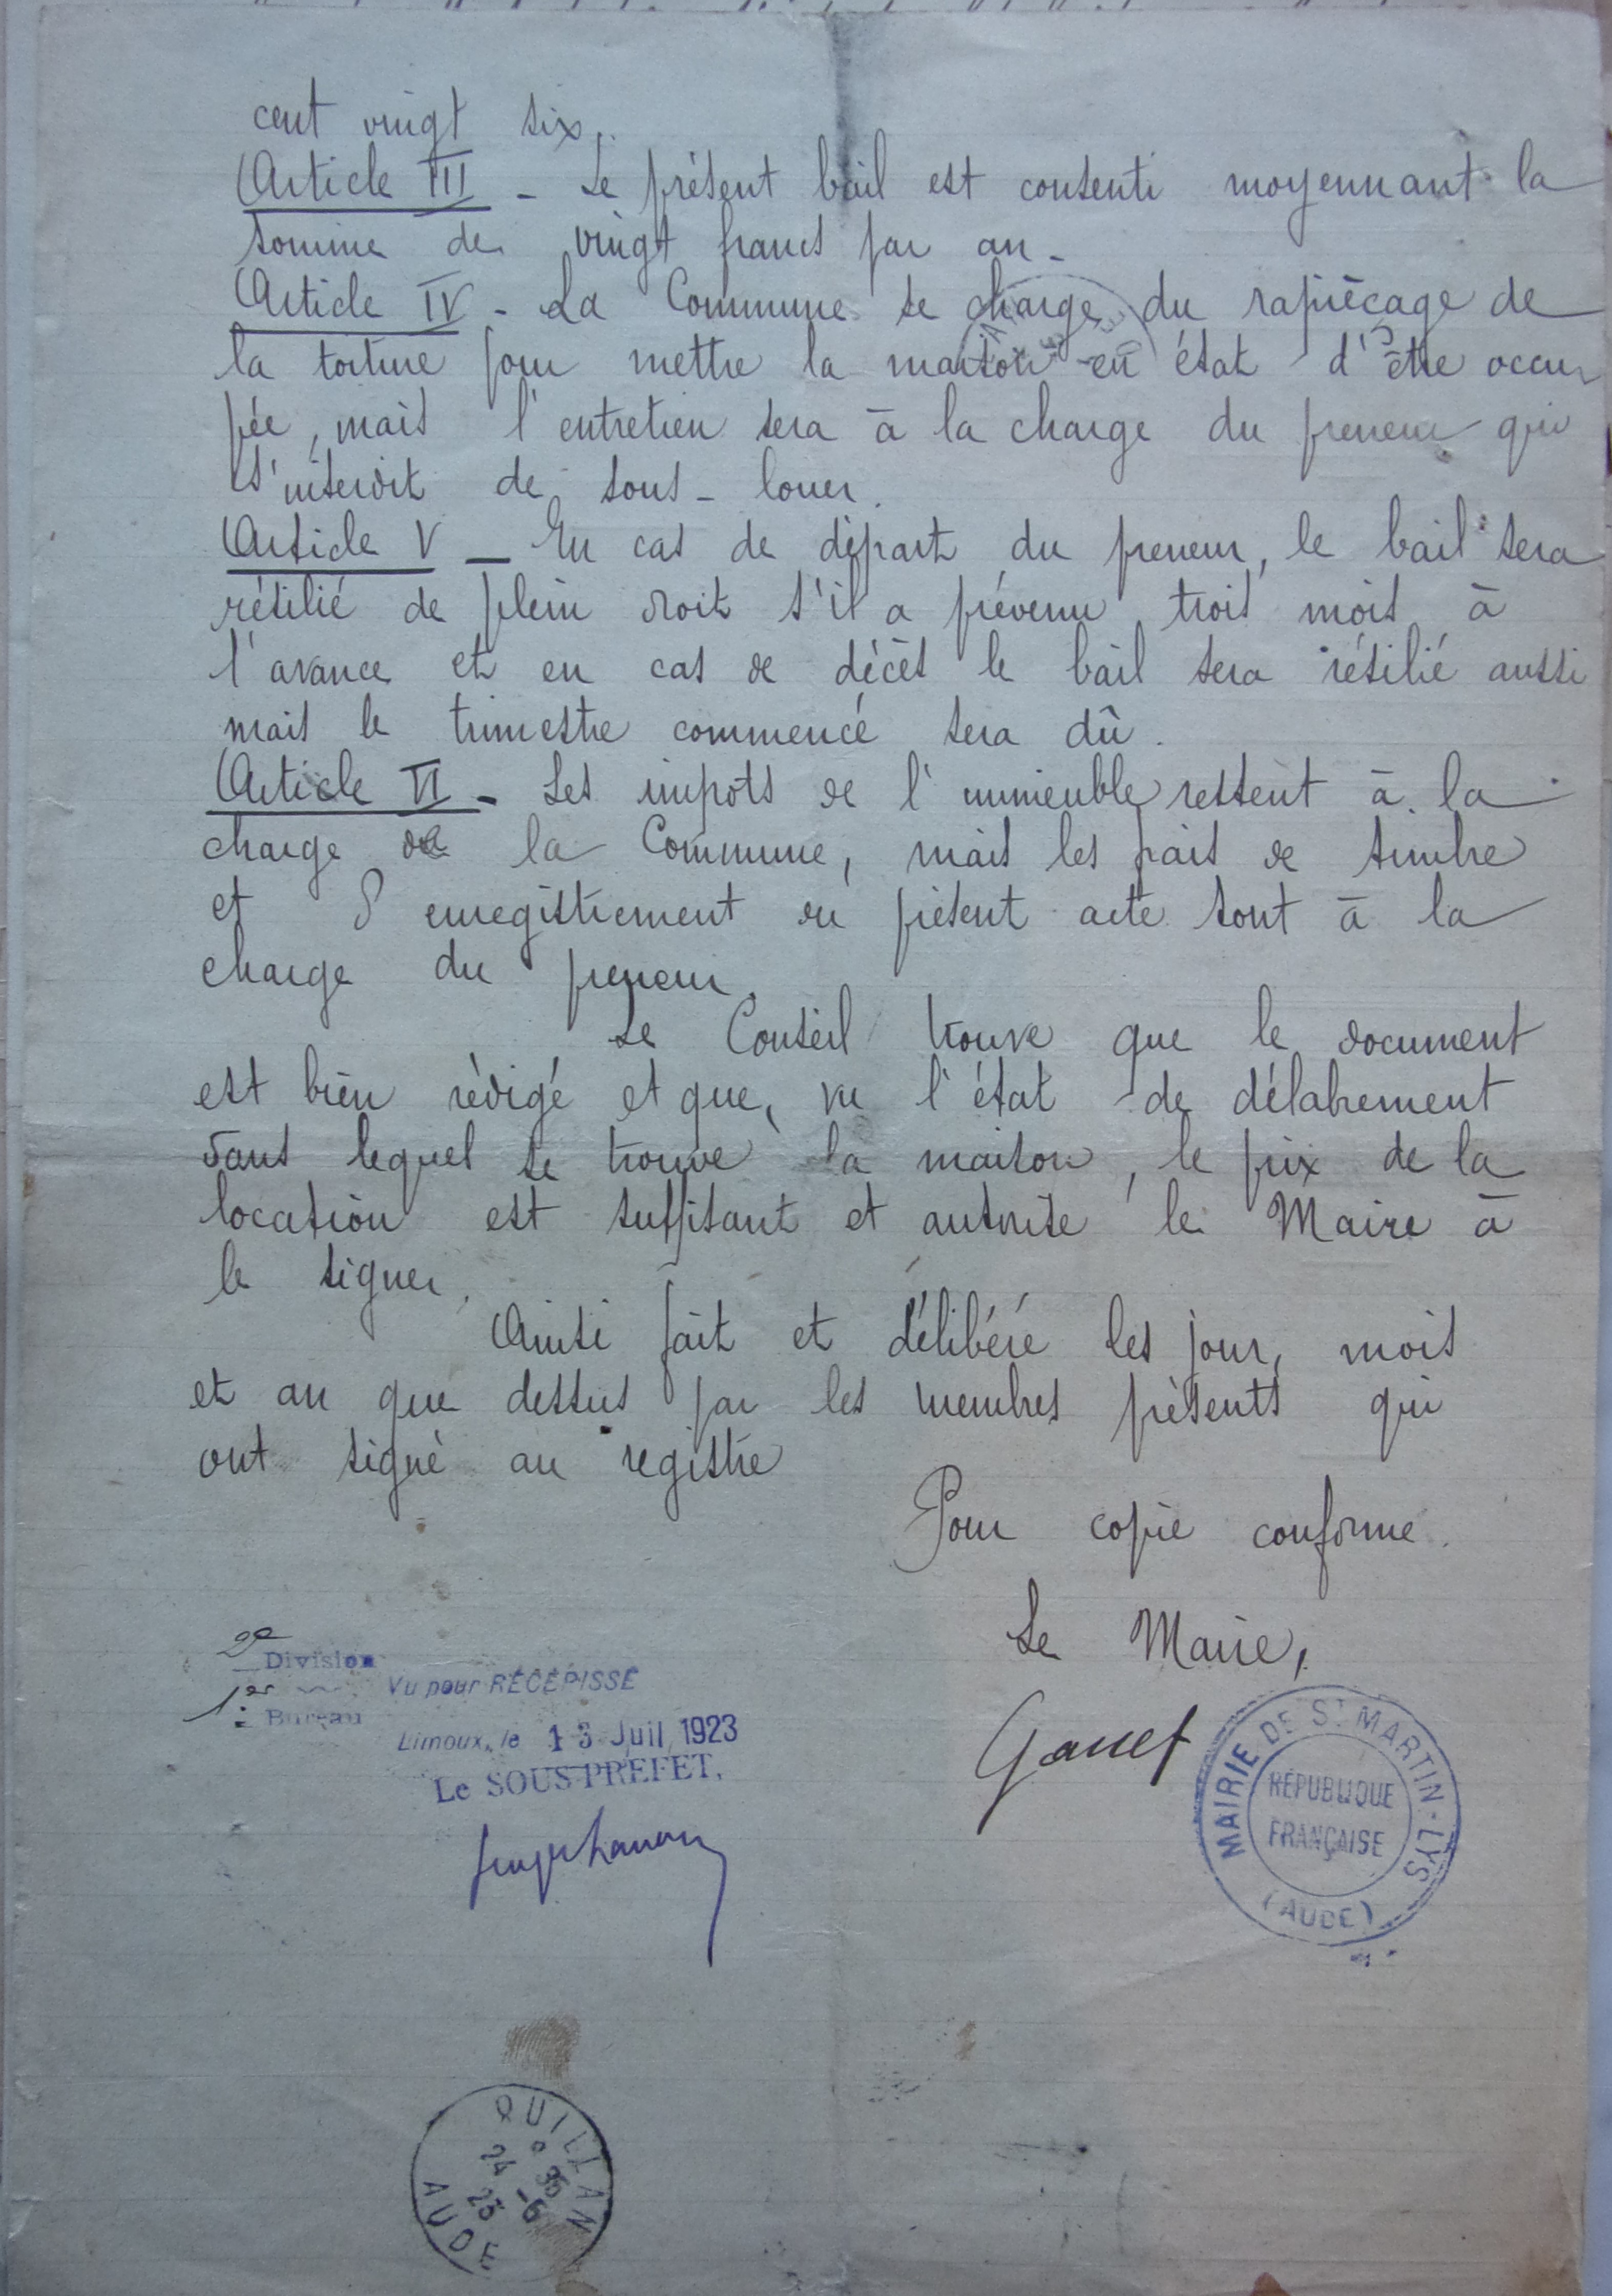 cent vingt six.
Article III - Le présent bail est consenti moyennant la
somme de vingt francs par an -
Article IV - La Commune se charge du rapiéçage de
la toiture pour mettre la maison en état d'être occu-
pée, mais l'entretien sera à la charge du preneur qui
s'interdit de sous-louer.
Article V - En cas de départ du preneur, le bail sera
résilié de plein droit s'il a prévenu trois mois à
l'avance et en cas de décès le bail sera résilié aussi
mais le trimestre commencé sera dû.
Article VI - Les impots de l'immeuble restent à la
charge de la Commune, mais les frais de timbre
et d'enregistrement du présent acte sont à la
charge du preneur.
Le Conseil trouve que le document
est bien rédigé et que, vu l'état de délabrement
dans lequel se trouve la maison, le prix de la
location est suffisant et autorise le Maire à
le signer.
Ainsi fait et délibéré les jour, mois
et an que dessus par les membres présents qui
ont signé au registre
Pour copie conforme.
Le Maire,
2e Division
1er Bureau
Vu pour RÉCÉPISSÉ
Limoux, le 13 Juil 1923
Le SOUS-PRÉFET,
MAIRIE DE ST MARTIN-LYS
RÉPUBLIQUE
FRANÇAISE
(AUDE)
QUILLAN
24 -6
23
AUDE